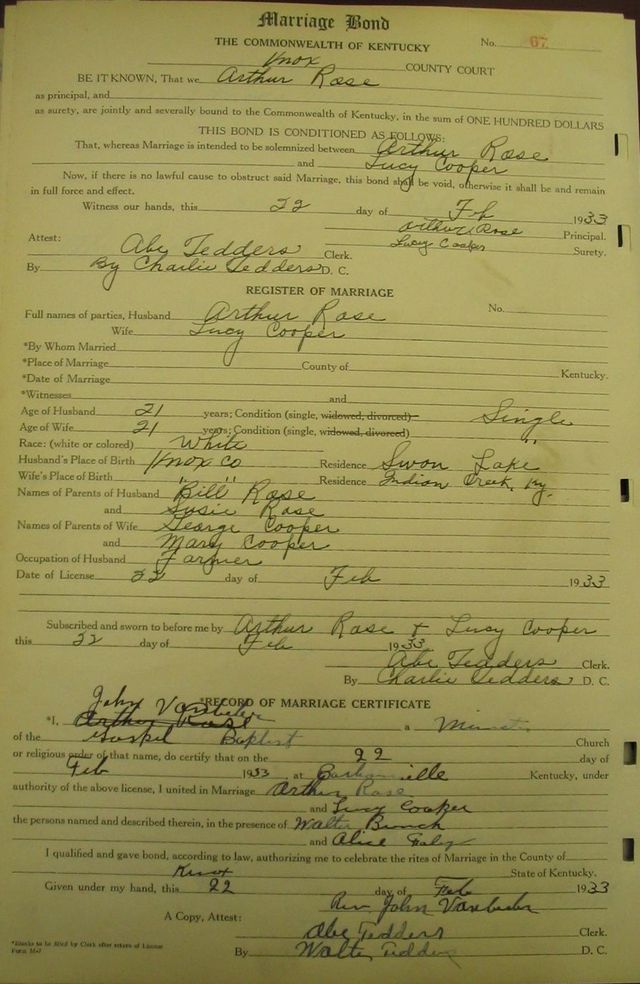 Marriage Bond
THE COMMONWEALTH OF KENTUCKY
No. 67
Knox COUNTY COURT
BE IT KNOWN, That we Arthur Rose
as principal, and
as surety, are jointly and severally bound to the Commonwealth of Kentucky, in the sum of ONE HUNDRED DOLLARS
THIS BOND IS CONDITIONED AS FOLLOWS:
That, whereas Marriage is intended to be solemnized between Arthur Rose
and Lucy Cooper
Now, if there is no lawful cause to obstruct said Marriage, this bond shall be void, otherwise it shall be and remain
in full force and effect.
Witness our hands, this 22 day of Feb 1933
Arthur Rose Principal.
Attest: Lucy Cooper Surety.
Abe Tedders Clerk.
By By Charlie Tedders D. C.
REGISTER OF MARRIAGE
Full names of parties, Husband Arthur Rose No.
Wife Lucy Cooper
*By Whom Married
*Place of Marriage County of Kentucky.
*Date of Marriage
*Witnesses and
Age of Husband 21 years; Condition (single, widowed, divorced) Single
Age of Wife 21 years; Condition (single, widowed, divorced) "
Race: (white or colored) White
Husband's Place of Birth Knox Co Residence Swon Lake
Wife's Place of Birth " " Residence Indian Creek, Ky.
Names of Parents of Husband Bill Rose
and Susie Rose
Names of Parents of Wife George Cooper
and Mary Cooper
Occupation of Husband Farmer
Date of License 22 day of Feb 1933
Subscribed and sworn to before me by Arthur Rose + Lucy Cooper
this 22 day of Feb 1933
Abe Tedders Clerk.
By Charlie Tedders D. C.
*RECORD OF MARRIAGE CERTIFICATE
John
*I, Arthur Rose a
of the Gospel Baptist Church
or religious order of that name, do certify that on the 22 day of
Feb 1933 at Barbourville Kentucky, under
authority of the above license, I united in Marriage Arthur Rose
and Lucy Cooper
the persons named and described therein, in the presence of Walter Bunch
and Alice
I qualified and gave bond, according to law, authorizing me to celebrate the rites of Marriage in the County of
Knox State of Kentucky.
Given under my hand, this 22 day of Feb 1933
Rev John
A Copy, Attest: Abe Tedders Clerk.
By Walter Tedders D. C.
*Blanks to be filled by Clerk after return of License